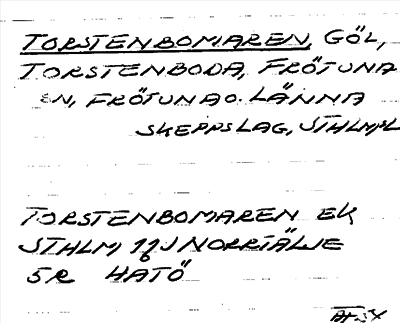 TORSTENBOMAREN, GÖL,
TORSTENBODA, FRÖTUNA
SN, FRÖTUNA O. LÄNNA
SKEPPSLAG, STHLM,L
TORSTENBOMAREN EK
STHLM 1 J NORRTÄLJE
5R HATÖ